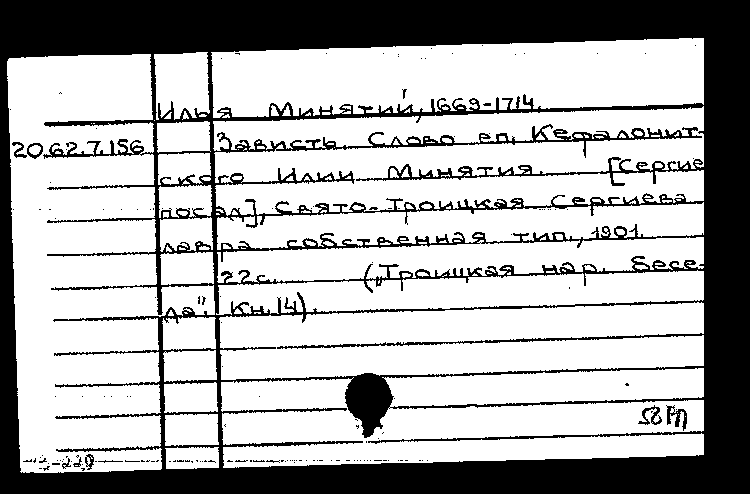 Илья Минятий, 1669-1714.
20.62.7.156 Зависть. Слово еп. Кефалонит-
ского Илии Минятия. [Сергиев
посад], Свято-Троицкая Сергиева
лавра собственная тип., 1901.
22с. („Троицкая нар. бесе-
да". Кн.14).
3-229